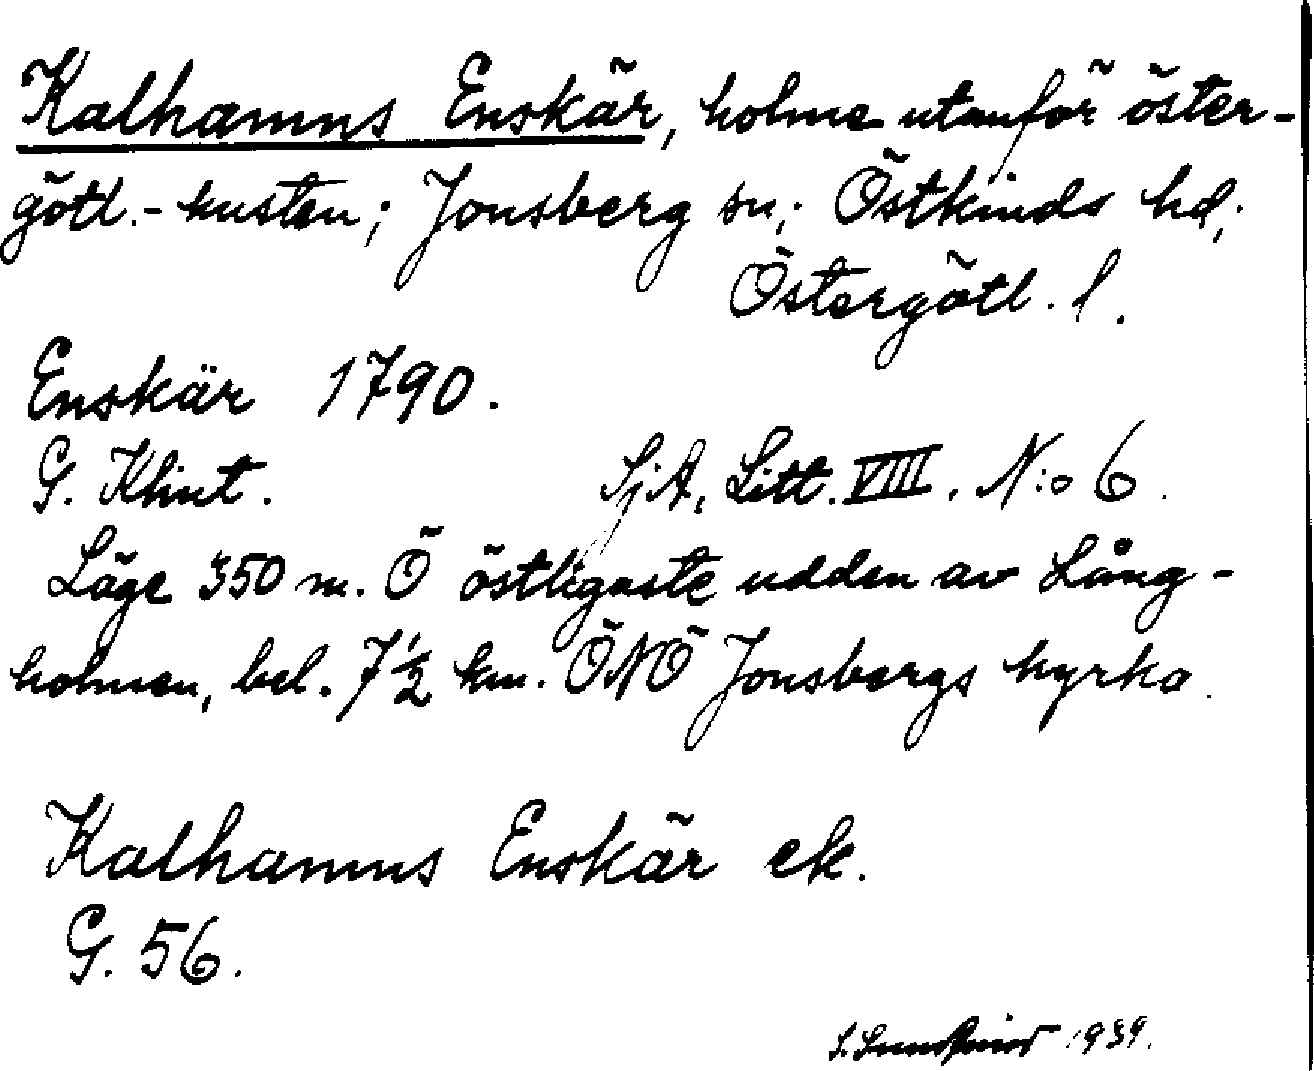 Kalhamns Enskär, holme utanför öster-
götl.-kusten; Jonsberg sn; Östkinds hd;
Östergötl. l.
Enskär 1790.
G. Klint. SjA, Litt. VIII. N:o 6.
Läge 350 m. Ö östligaste udden av Lång-
holmen, bel. 7 1/2 km. ÖNÖ Jonsbergs kyrka.
Kalhamns Enskär ek.
G. 56.
S. 1939.